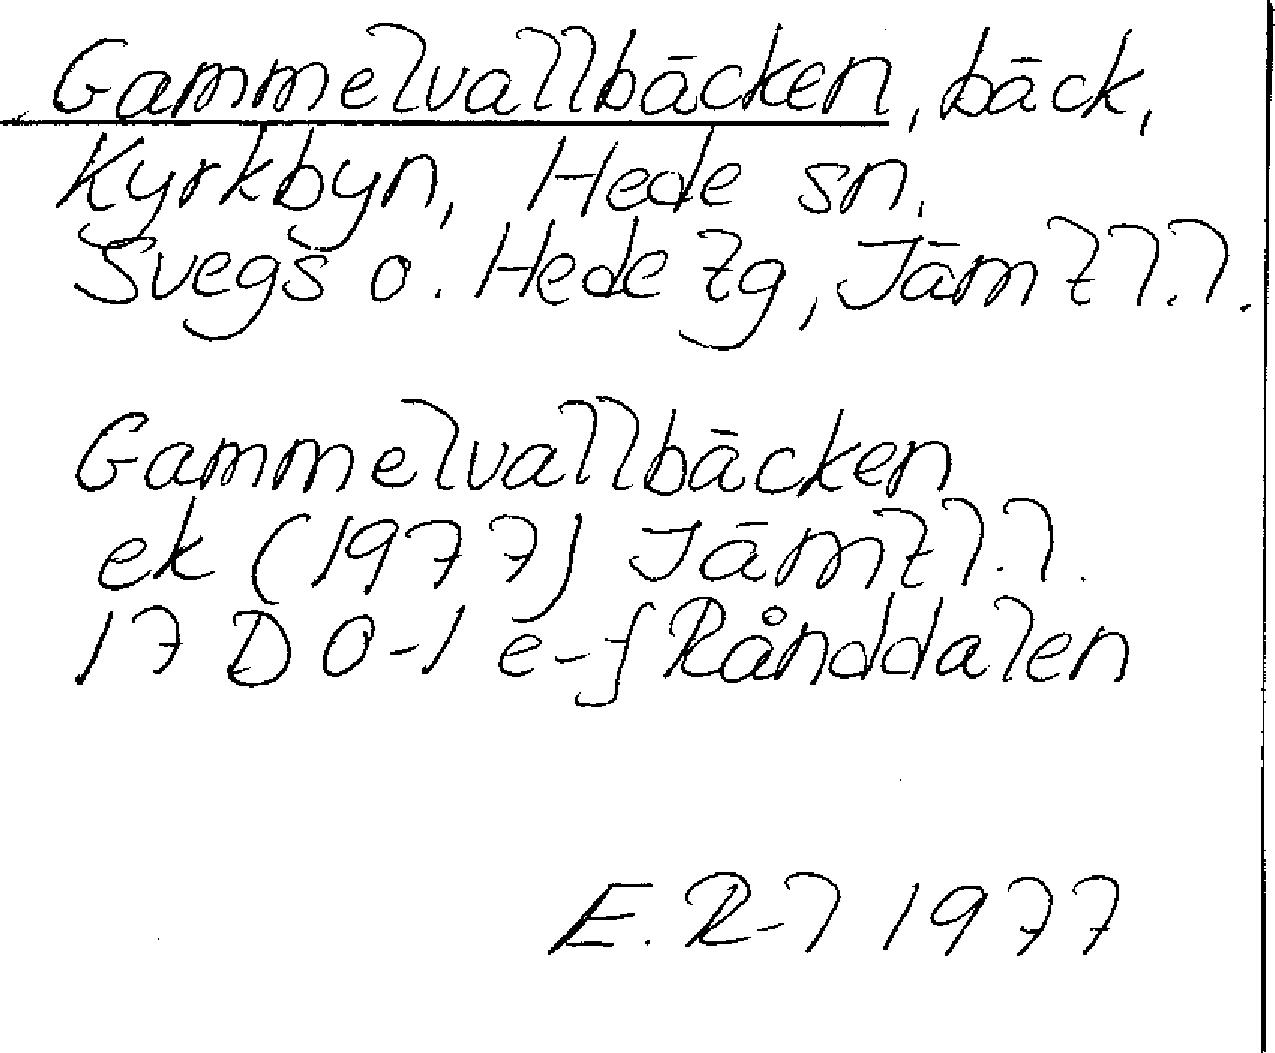 Gammelvallbäcken, bäck,
Kyrkbyn, Hede sn,
Svegs o. Hede tg, Jämtl.l.
Gammelvallbäcken
ek (1977) Jämtl.l.
17 D 0-1 e-f Rånddalen
E. R-l 1977